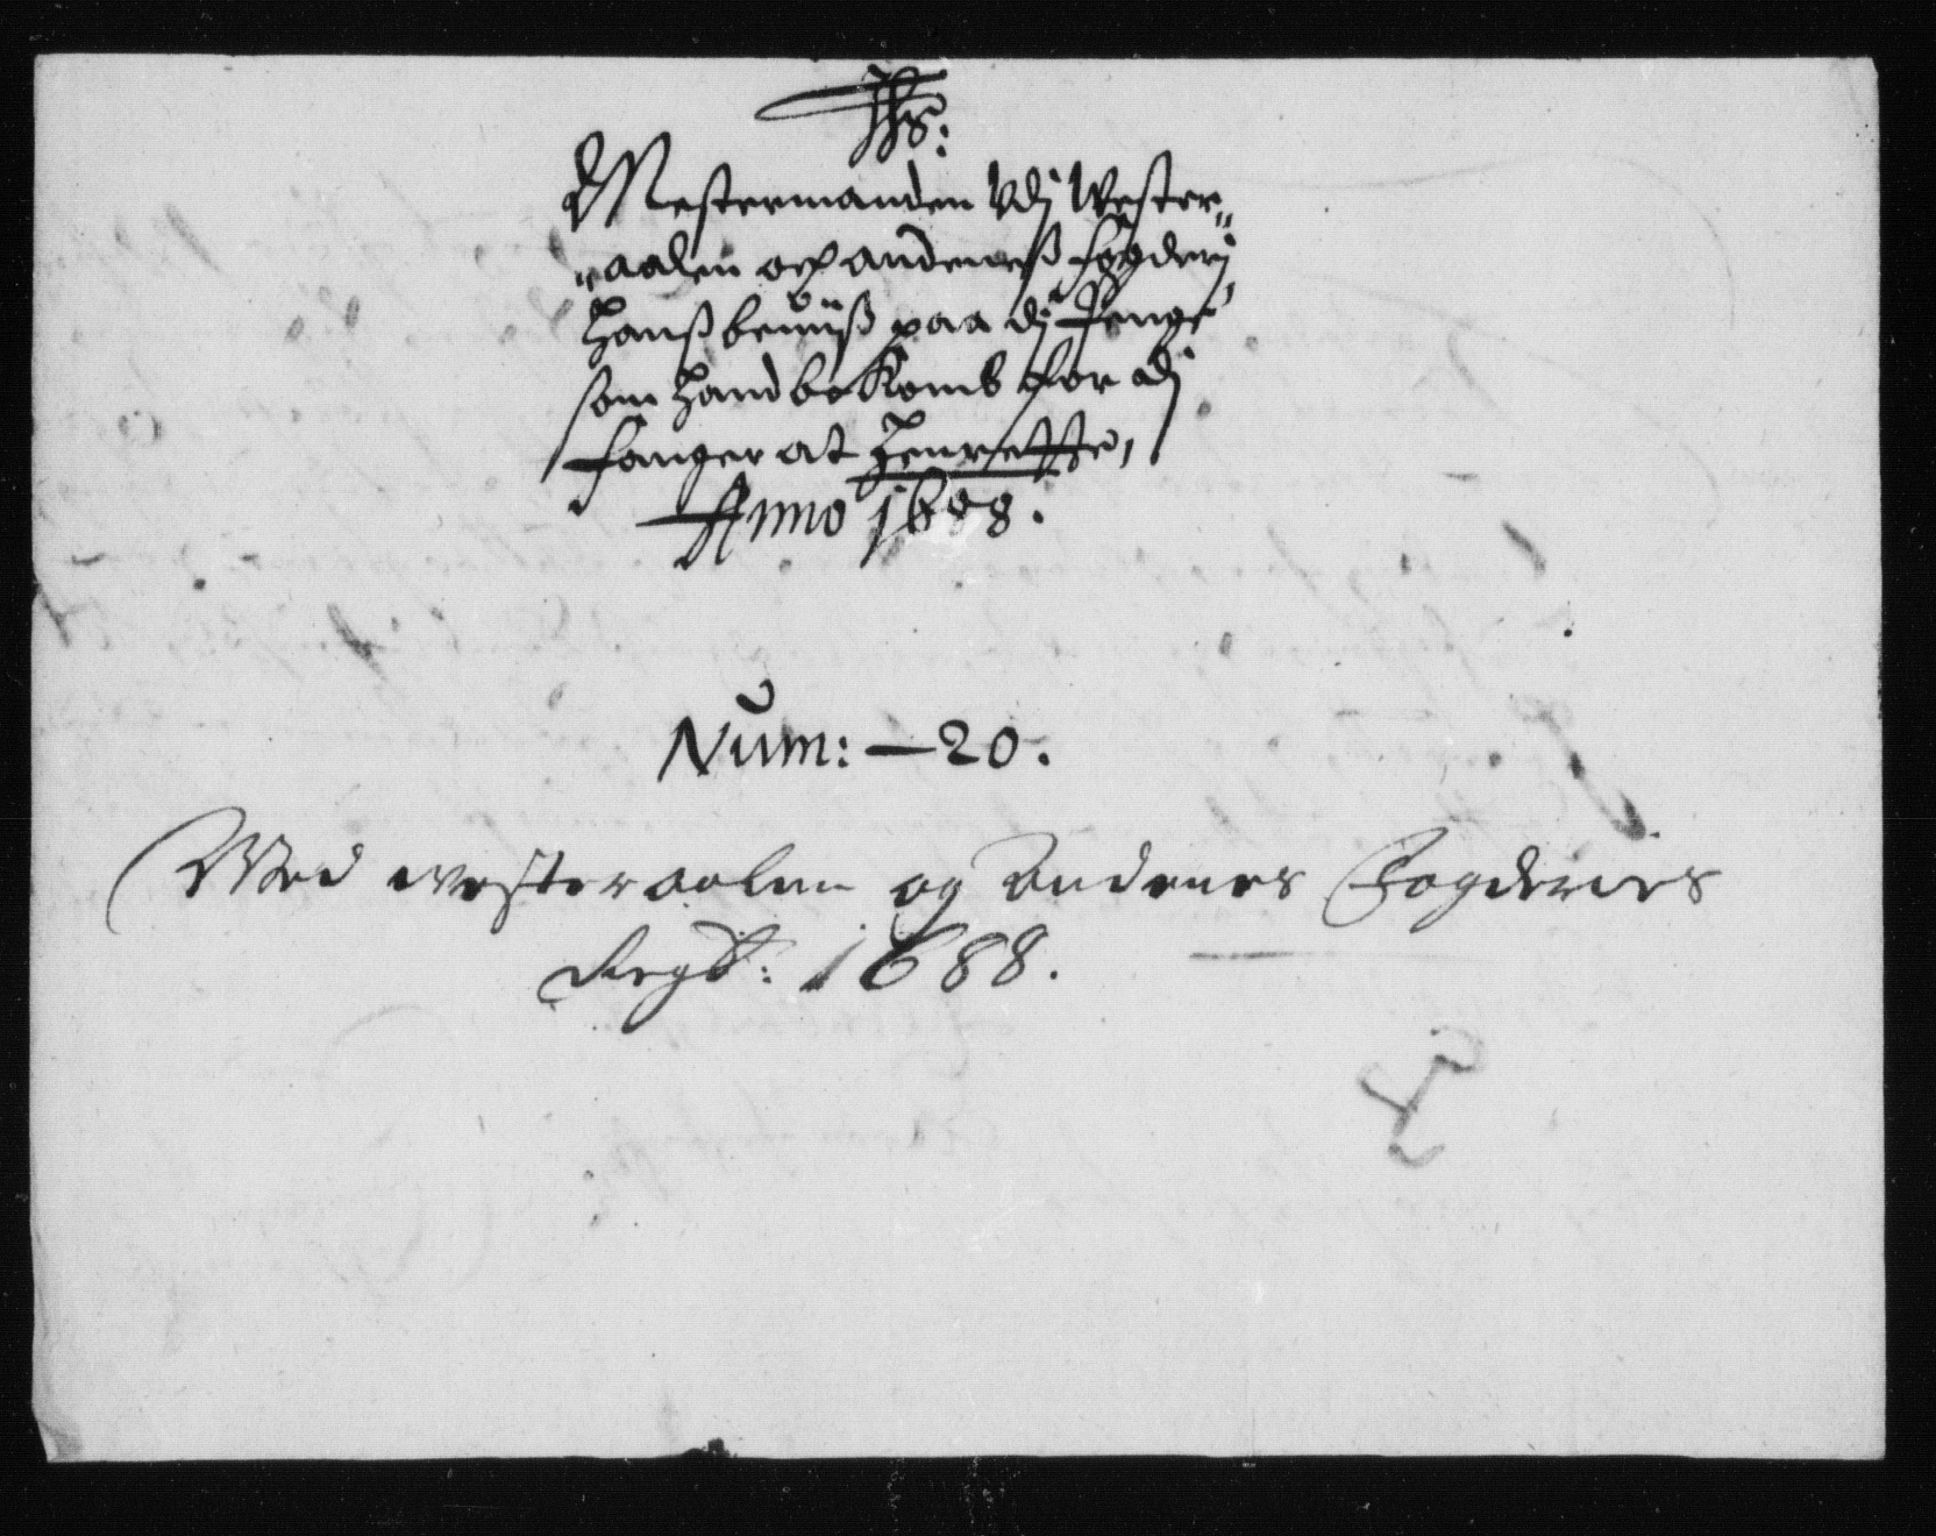 Jhs:
Mestermanden Udj Wester„
„aalen och andeneß fogderj
Hanß beviiß paa dj Penge
som Hand bekomb for dj
fanger at Henrette,
Anno 1688.
Num: — 20.
Med westeraalen og Andenes Fogderies
Regb: 1688.